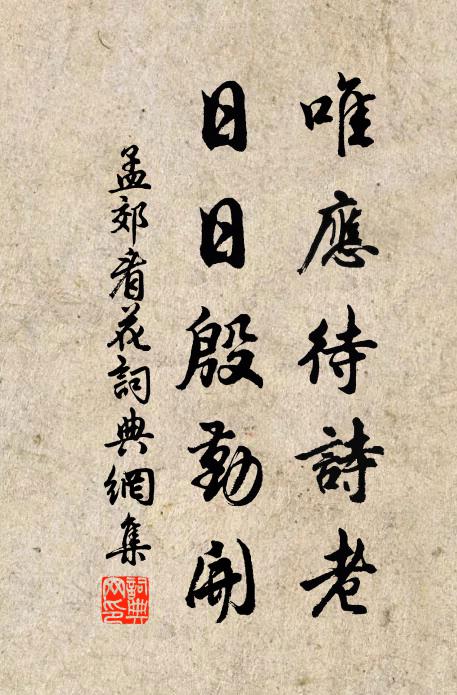 唯應待詩老
日日殷勤開
孟郊看花詞典網集
詞典
網印